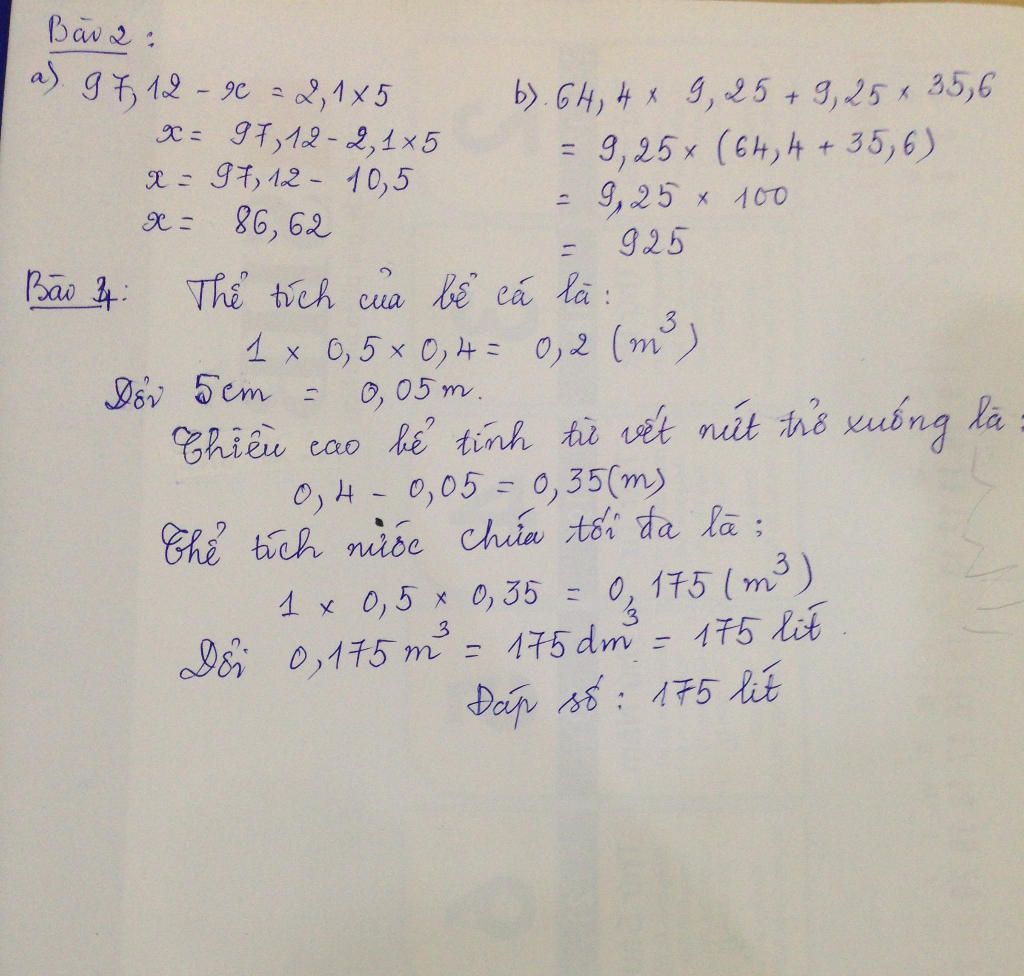 Bài 2 :
a) 97,12 - x = 2,1 x 5
x = 97,12 - 2,1 x 5
x = 97,12 - 10,5
x = 86,62
b) 64,4 x 9,25 + 9,25 x 35,6
= 9,25 x (64,4 + 35,6)
= 9,25 x 100
= 925
Bài 4: Thể tích của bể cá là :
1 x 0,5 x 0,4 = 0,2 (m³)
Đổi 5cm = 0,05m.
Chiều cao bể tính từ vết nứt trở xuống là :
0,4 - 0,05 = 0,35(m)
Thể tích nước chứa tối đa là :
1 x 0,5 x 0,35 = 0,175 (m³)
Đổi 0,175 m³ = 175 dm³ = 175 lít.
Đáp số : 175 lít